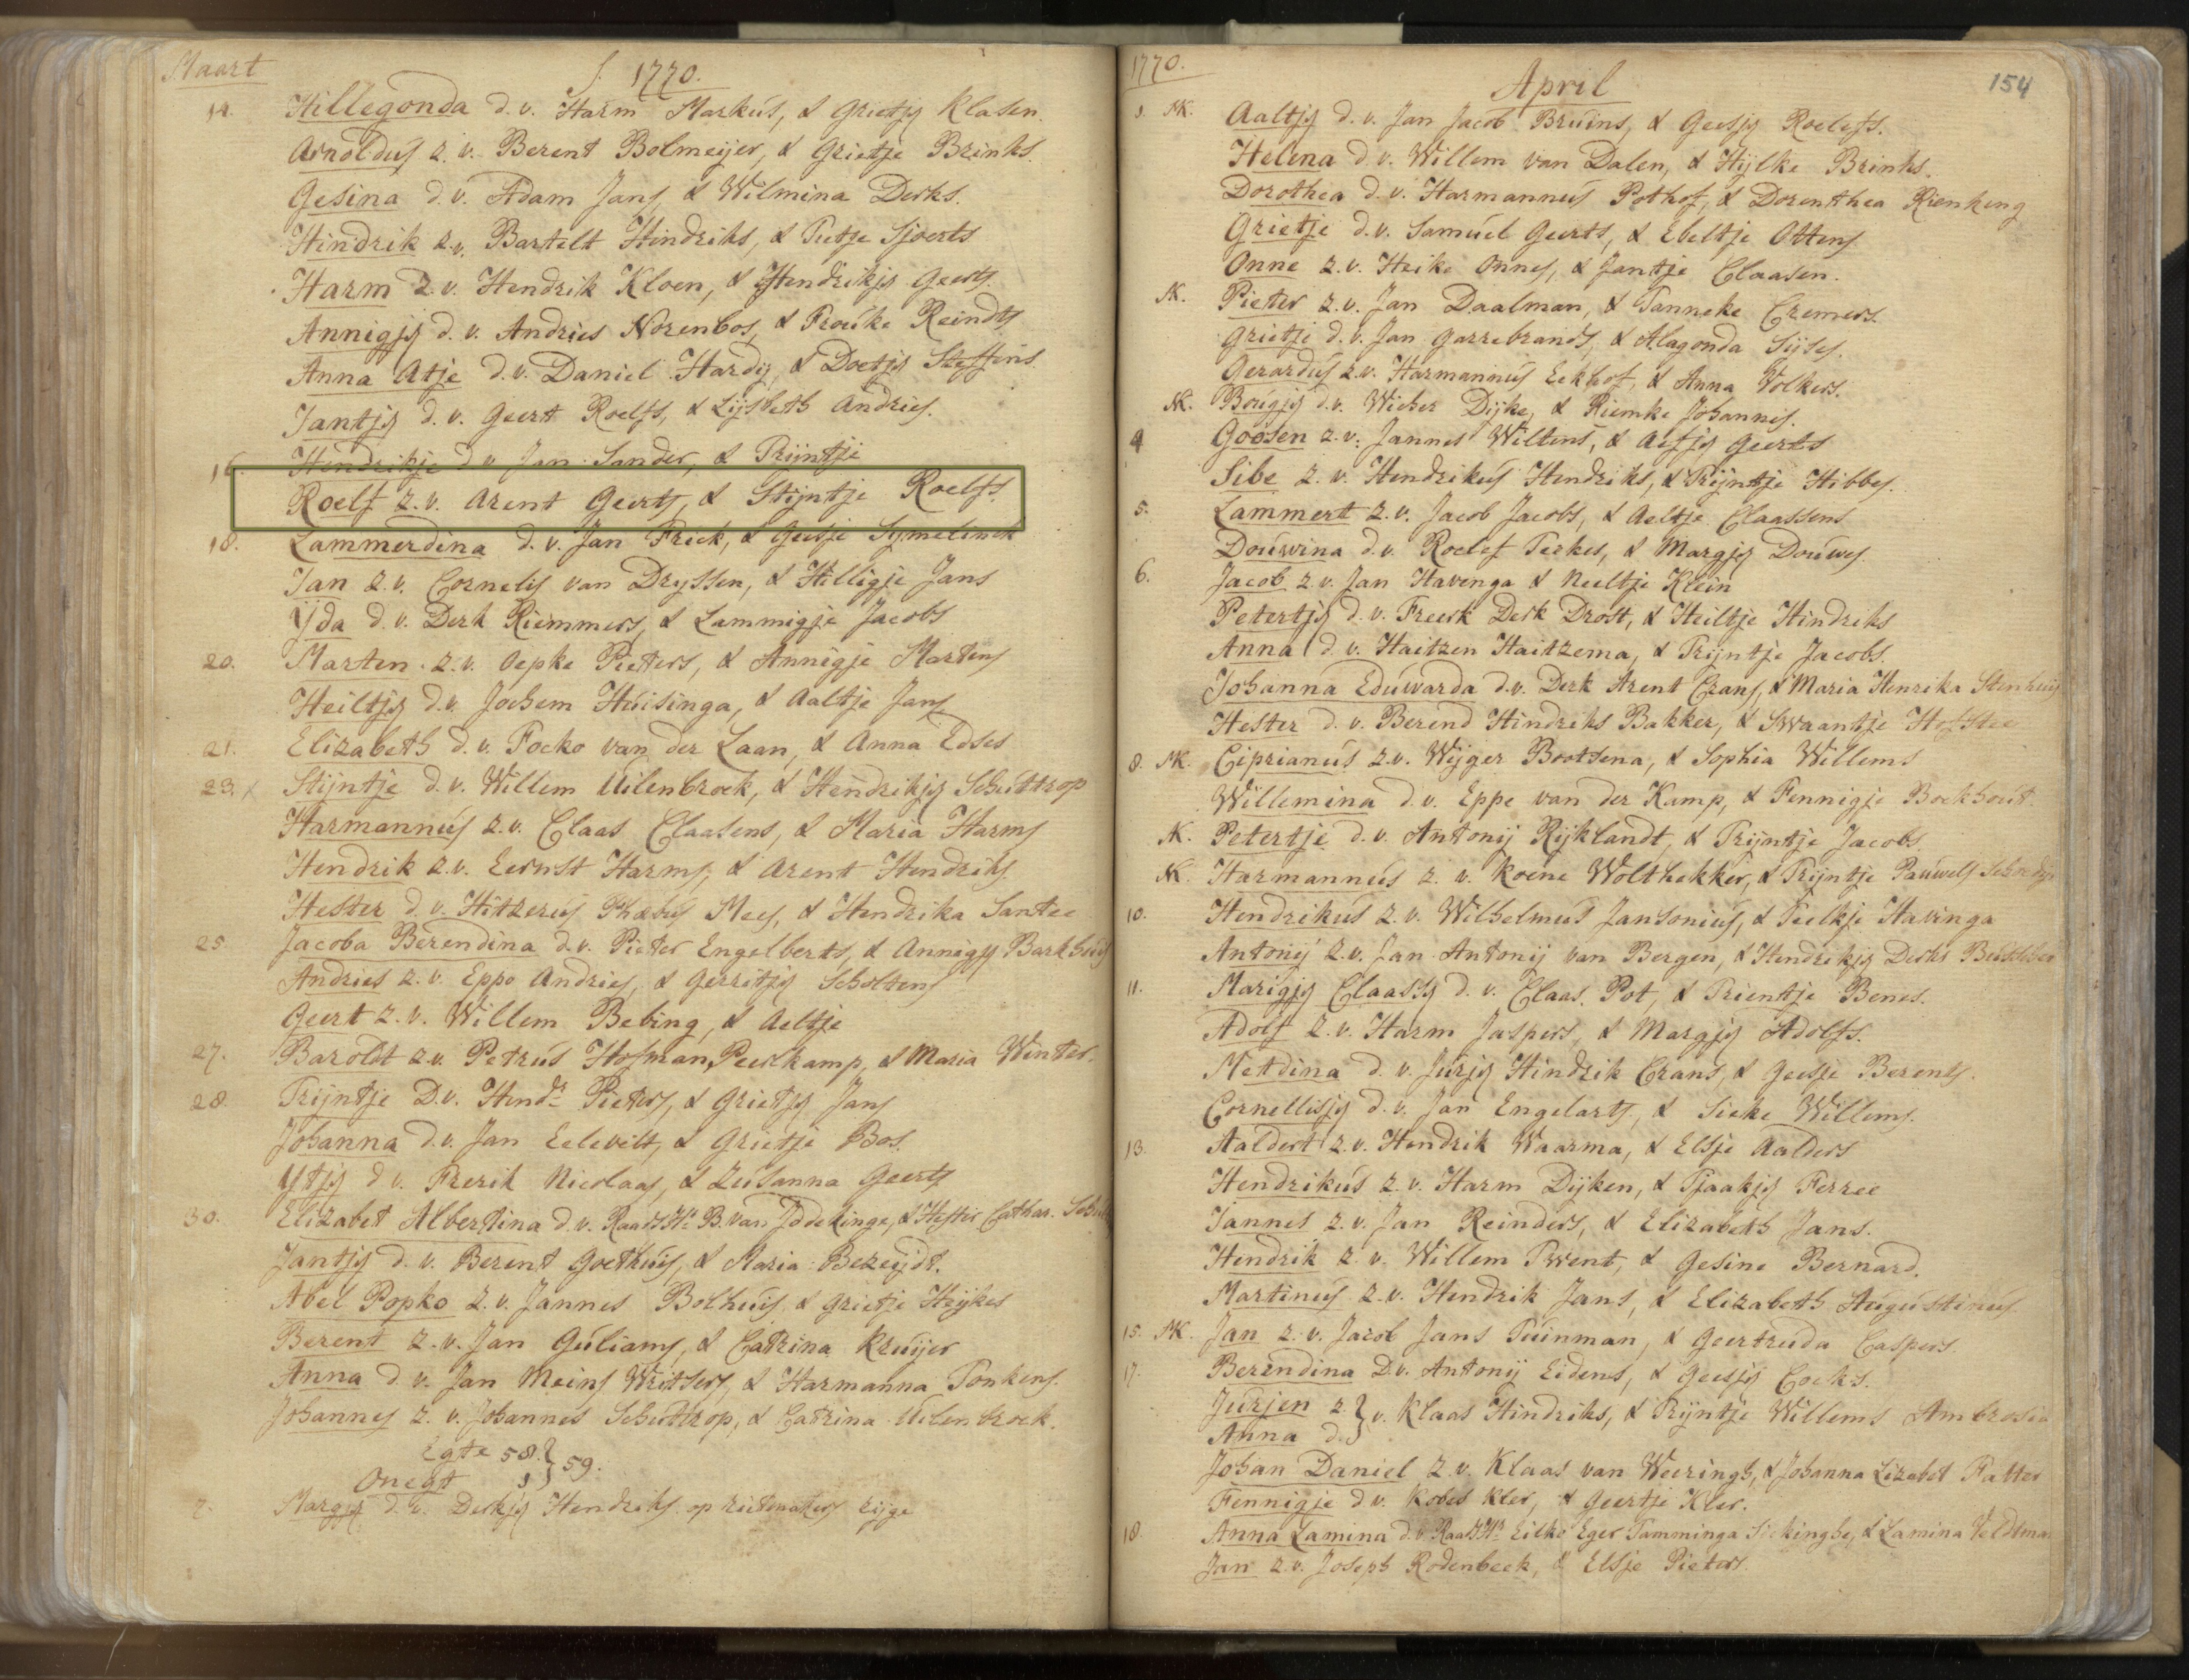 Maart 1770.
14. Hillegonda d. v. Harm Markus, & Grietjy Klasen.
Arnoldus z. v. Berent Bolmeijer, & Grietje Brinks.
Gesina d. v. Adam Jans, & Wilmina Derks.
Hindrik z. v. Bartelt Hindriks, & Tietje Sjoerts
Harm z. v. Hendrik Kloen, & Hendrikjy Geerts.
Annigjy d. v. Andries Norenbos, & Frouke Reindts
Anna Atje d. v. Daniel Hardy, & Doetjy Steffens
Jantjy d. v. Geert Roelfs, & Lijsbeth Andries.
16. Hendrikje d. v. Jan Sander, & Trijntje
Roelf z. v. Arent Geerts, & Stijntje Roelfs.
18. Lammerdina d. v. Jan Freek, & Geesje Symelinck
Jan z. v. Cornelis van Dryssen, & Hilligje Jans
Yda d. v. Derk Riemmers, & Lammigje Jacobs
20. Marten z. v. Oepke Pieters, & Annigje Martens
Heiltjy d. v. Jochem Huisinga, & Aaltje Jans
21. Elizabeth d. v. Focko van der Laan, & Anna Edses
23. Stijntje d. v. Willem Uilenbroek, & Hendrikjy Schuttrop
Harmannus z. v. Claas Claasens, & Maria Harms
Hendrik z. v. Eernst Harms, & Arent Hendriks.
Hester d. v. Hitzerus Phæbus Mees, & Hendrika Santee
25 Jacoba Berendina d. v. Pieter Engelberts, & Annigjy Barkhuis
Andries z. v. Eppo Andries, & Gerritjy Scholtens
Geert z. v. Willem Bebing, & Aeltje
27. Baroldt z. v. Petrus Hofman Peerkamp, & Maria Winter.
28. Trijntje D. v. Hendr. Pieters, & Grietjy Jans
Johanna d. v. Jan Eelevelt, & Grietje Bos.
Ytjy d v. Frerik Nicolaas, & Zusanna Geerts
30. Elizabet Albertina d. v. Raads Hr. B. van Iddekinge, & Hester Cathar.
Jantjy d. v. Berent Goethuis, & Maria Bezeijdt.
Abel Popko z. v. Jannes Bolhuis, & Grietje Heijkes
Berent z. v. Jan Guliams, & Catrina Kruijer
Anna d. v. Jan Meins Writsers, & Harmanna Tonkens.
Johannes z. v. Johannes Schuttrop, & Catrina Uilenbroek.
Egte 58. } 59.
Onegt 1
2. Margjy d. v. Derkjy Hendriks op rietmakers rijge
1770. April 154
1. NK. Aaltjy d. v. Jan Jacob Bruins, & Geesjy Roelefs.
Helena d. v. Willem van Dalen, & Hijlke Brinks.
Dorothea d. v. Harmannus Pothof, & Dorenthea Rienkeng
Grietje d. v. Samuel Geerts, & Ebeltje Ottens
Onne z. v. Heike Onnes, & Jantje Claasen.
NK. Pieter z. v. Jan Daalman, & Tanneke Cremers.
Grietje d. v. Jan Garrebrands, & Alagonda Sijses.
Gerardus z. v. Harmannus Eekhof, & Anna Volkers.
NK. Bougjy d. v. Wieher Dijke, & Riemke Johannes.
4 Goosen z. v. Jannes Wiltens, & Aefjy Geerts
Sibe z. v. Hendrikus Hendriks, & Trijntje Hibbes.
5. Lammert z. v. Jacob Jacobs, & Aeltje Claassens
Douwina d. v. Roelef Teekes, & Margjy Douwes.
6. Jacob z. v. Jan Havenga & Neeltje Klein
Petertjy d. v. Freerk Derk Drost, & Heiltje Hindriks
Anna d. v. Haitzen Haitzema, & Trijntje Jacobs.
Johanna Eduwarda d. v. Derk Arent Crans, & Maria Henrika Stenhuis
Hester d. v. Berend Hindriks Bakker, & Swaantje Hofstee
8. NK. Ciprianus z. v. Wijger Bootsena, & Sophia Willems
Willemina d. v. Eppe van der Kamp, & Fennigje Boekhout.
NK. Petertje d. v. Antonij Rijklandt, & Trijntje Jacobs.
NK. Harmannus z. v. Koene Wolthekker, & Trijntje Pauwels
10. Hendrikus z. v. Wilhelmus Jansonius, & Teelkje Havinga
Antonij z. v. Jan Antonij van Bergen, & Hendrikjy Derks
11. Marigjy Claassy d. v. Claas Pot, & Trientje Benes.
Adolf z. v. Harm Jaspers, & Margjy Adolfs.
Metdina d. v. Jurjy Hindrik Crans, & Geesje Berents.
Cornellisjy d. v. Jan Engelarts, & Sieke Willems.
13. Aaldert z. v. Hendrik Waarma, & Elsje Aalders
Hendrikus z. v. Harm Dijken, & Tjaakjy Ferree
Jannes z. v. Jan Reinders, & Elizabeth Jans.
Hendrik z. v. Willem Twent, & Gesine Bernard.
Martinus z. v. Hendrik Jans, & Elizabeth Augustinus.
15. NK. Jan z. v. Jacob Jans Tuinman, & Geertruda Caspers.
17. Berendina D. v. Antonij Eidens, & Geesjy Cocks.
Jurjen z. } v. Klaas Hindriks, & Trijntje Willems Ambrosius
Anna d.
Johan Daniel z. v. Klaas van Weeringh, & Johanna Lizabet Fatter
Fennigje d v. Kobes Kler, & Geertje Kler.
18. Anna Lamina d. v. Raads Hr. Eilko Eger Tamminga Sickinghe, & Lamina Veldtman
Jan z. v. Joseph Rodenbeek, & Elsje Pieters